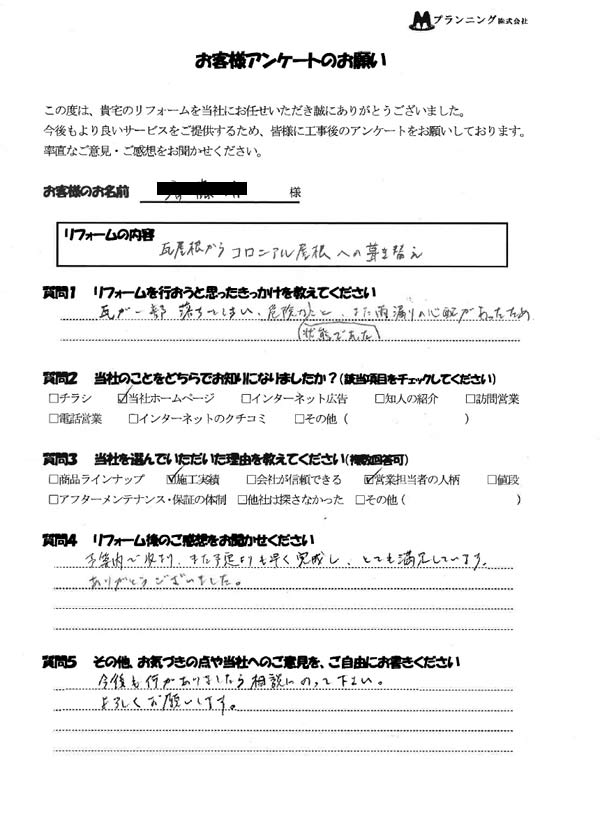 Mプランニング株式会社
お客様アンケートのお願い
この度は、貴宅のリフォームを当社にお任せいただき誠にありがとうございました。
今後もより良いサービスをご提供するため、皆様に工事後のアンケートをお願いしております。
率直なご意見・ご感想をお聞かせください。
お客様のお名前 様
リフォームの内容
瓦屋根から コロニアル屋根 への葺き替え
質問1 リフォームを行おうと思ったきっかけを教えてください
瓦が一部 落ちてしまい、危険な と、また雨漏りの心配があったため
状態であった
質問2 当社のことをどちらでお知りになりましたか?(該当項目をチェックしてください)
□チラシ ☑当社ホームページ □インターネット広告 □知人の紹介 □訪問営業
□電話営業 □インターネットのクチコミ □その他 ( )
質問3 当社を選んでいただいた理由を教えてください(複数回答可)
□商品ラインナップ ☑施工実績 □会社が信頼できる ☑営業担当者の人柄 □値段
□アフターメンテナンス・保証の体制 □他社は探さなかった □その他 ( )
質問4 リフォーム後のご感想をお聞かせください
予算内で収まり、また予定よりも早く完成し、とても満足しています。
ありがとうございました。
質問5 その他、お気づきの点や当社へのご意見を、ご自由にお書きください
今後も何かありましたら相談にのって下さい。
よろしくお願いします。